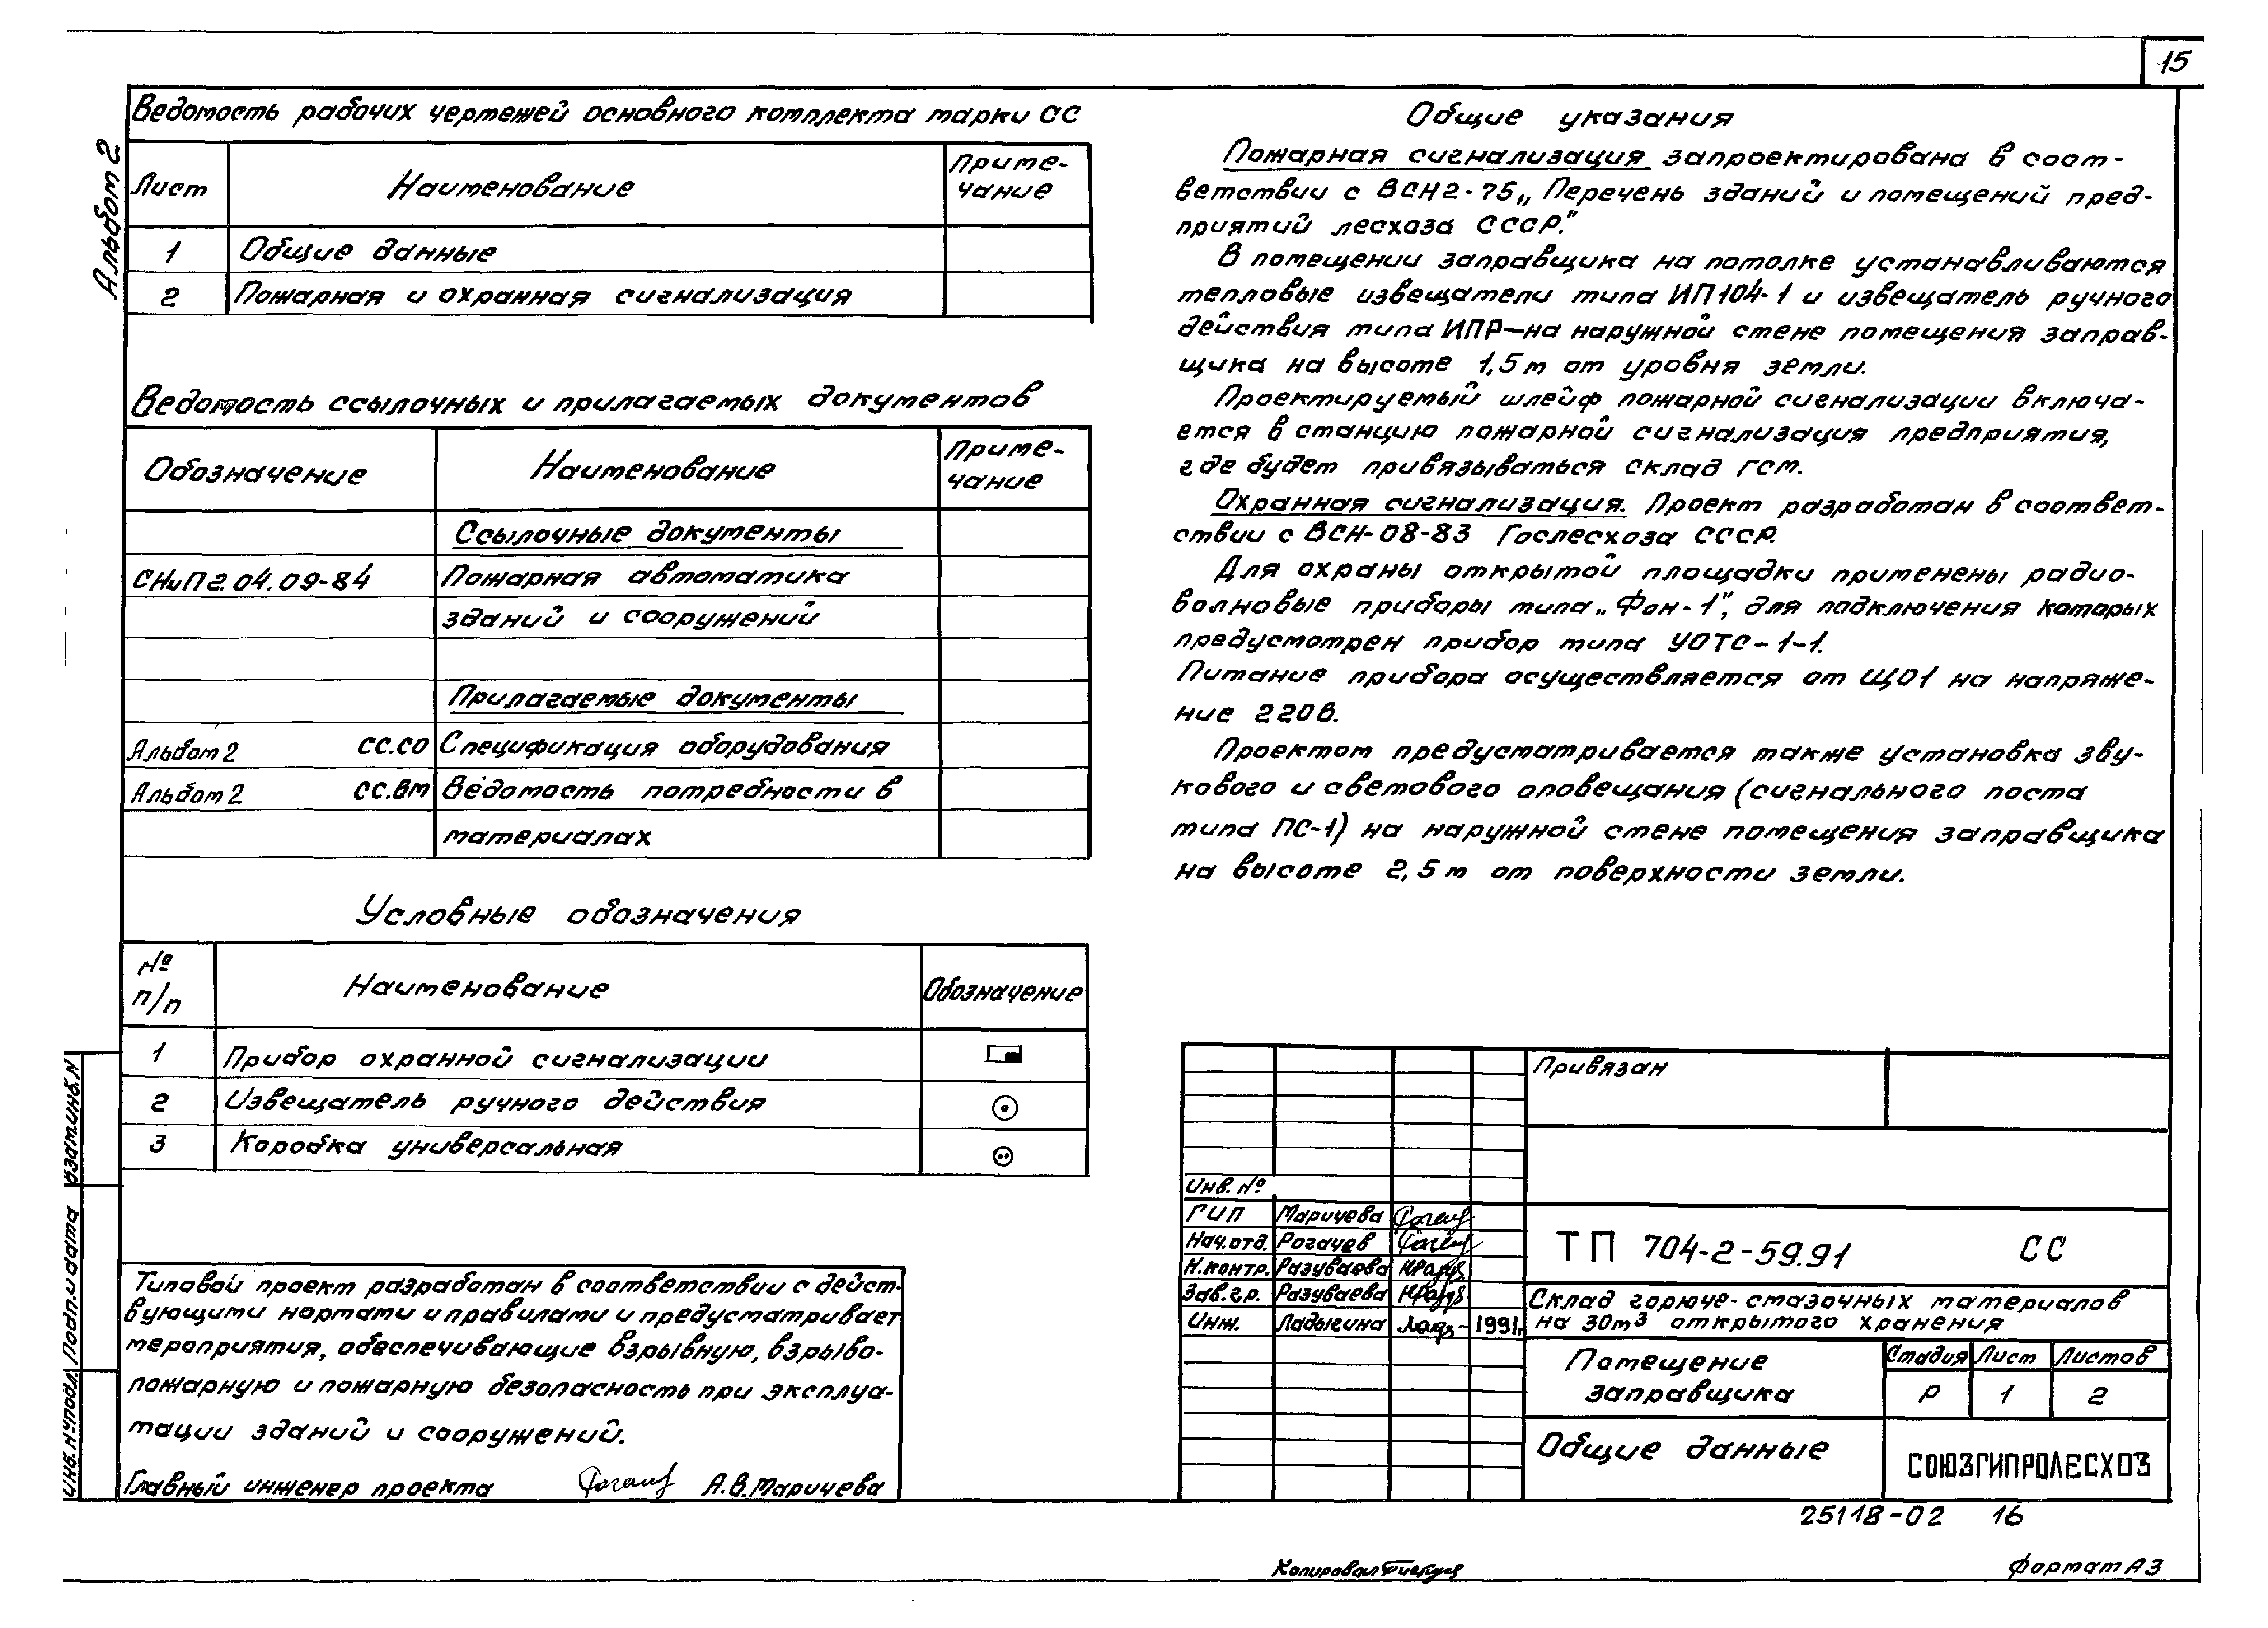 15
Альбом 2
Ведомость рабочих чертежей основного комплекта марки СС
Лист Наименование Приме-
чание
1 Общие данные
2 Пожарная и охранная сигнализация
Ведомость ссылочных и прилагаемых документов
Обозначение Наименование Приме-
чание
Ссылочные документы
СНиП 2.04.09-84 Пожарная автоматика
зданий и сооружений
Прилагаемые документы
Альбом 2 СС.СО Спецификация оборудования
Альбом 2 СС.ВМ Ведомость потребности в
материалах
Условные обозначения
№
п/п Наименование Обозначение
1 Прибор охранной сигнализации
2 Извещатель ручного действия
3 Коробка универсальная
Типовой проект разработан в соответствии с дейст-
вующими нормами и правилами и предусматривает
мероприятия, обеспечивающие взрывную, взрыво-
пожарную и пожарную безопасность при эксплуа-
тации зданий и сооружений.
Главный инженер проекта А.В.Маричева
Взам.инв.N
Подп.и дата
Инв.Nподл.
Общие указания
Пожарная сигнализация запроектирована в соот-
ветствии с ВСН 2-75 „Перечень зданий и помещений пред-
приятий лесхоза СССР."
В помещении заправщика на потолке устанавливаются
тепловые извещатели типа ИП 104-1 и извещатель ручного
действия типа ИПР—на наружной стене помещения заправ-
щика на высоте 1,5м от уровня земли.
Проектируемый шлейф пожарной сигнализации включа-
ется в станцию пожарной сигнализация предприятия,
где будет привязываться склад ГСМ.
Охранная сигнализация. Проект разработан в соответ-
ствии с ВСН-08-83 Гослесхоза СССР.
Для охраны открытой площадки применены радио-
волновые приборы типа „Фон-1", для подключения которых
предусмотрен прибор типа УОТС-1-1.
Питание прибора осуществляется от ЩО1 на напряже-
ние 220В.
Проектом предусматривается также установка зву-
кового и светового оповещания (сигнального поста
типа ПС-1) на наружной стене помещения заправщика
на высоте 2,5м от поверхности земли.
Привязан
Инв. №
ГИП Маричева
Нач.отд. Рогачев
Н.контр. Разуваева
Зав.гр. Разуваева
Инж. Ладыгина 1991г.
ТП 704-2-59.91 СС
Склад горюче-смазочных материалов
на 30м³ открытого хранения
Помещение
заправщика
Стадия Лист Листов
Р 1 2
Общие данные
СОЮЗГИПРОЛЕСХОЗ
25118-02 16
Копировал
Формат А3